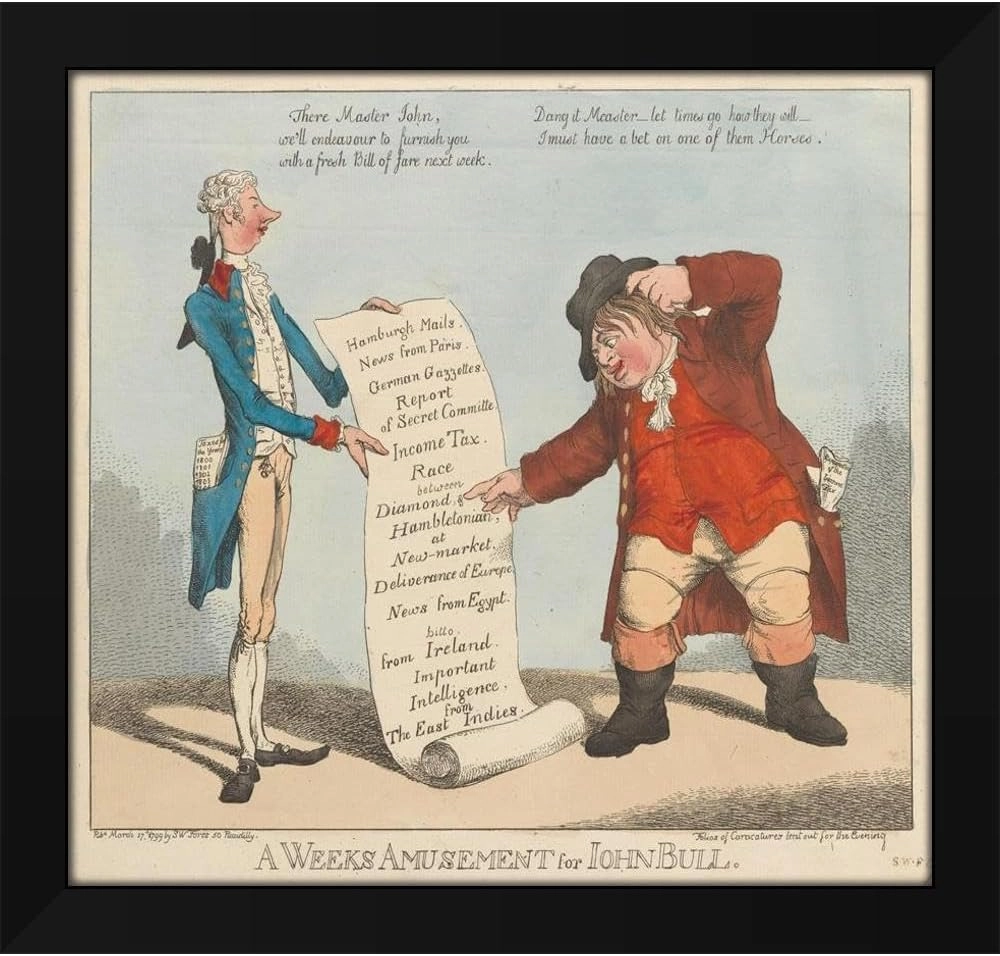 There Master John,
we'll endeavour to furnish you
with a fresh Bill of fare next week.
Dang it Measter_let times go how they will_
I must have a bet on one of them Horses.
Hamburgh Mails.
News from Paris.
German Gazzettes.
Report
of Secret Committe
Income Tax.
Race
between
Diamond, &
Hambletonian,
at
New-market.
Deliverance of Europe
News from Egypt.
ditto.
from Ireland.
Important
Intelligence,
from
The East Indies.
the Years
1800
1801
1802
of the
Income
Tax
Pub. March 17, 1799 by S W Fores 50 Piccadilly.
Folios of Caracatures lent out for the Evening
A WEEKS AMUSEMENT for IOHN BULL.
S.W.F